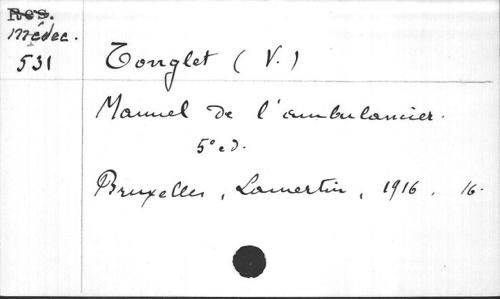 Res.
médec.
531
Tonglet (V.)
Manuel de l'ambulancier.
5e éd.
Bruxelles, Lamertin, 1916, 16.